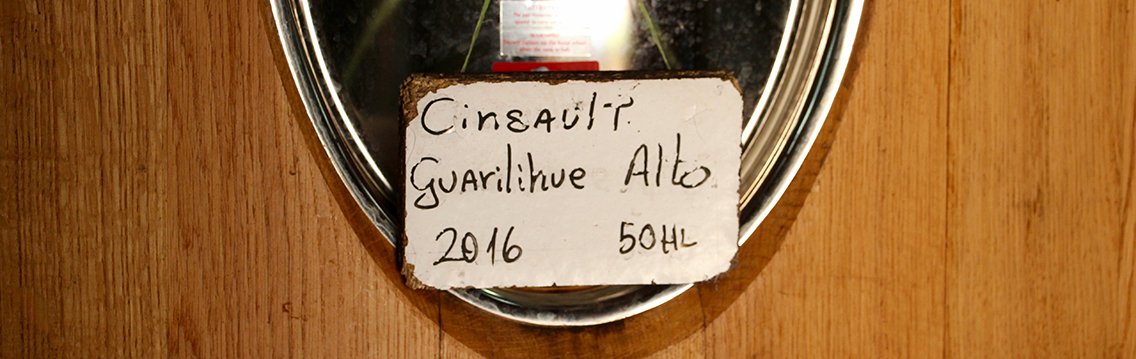 Cinsault
Guarilihue Alto
2016 50HL